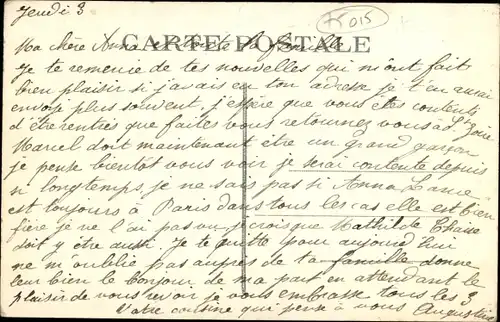 Jeudi 3
75015
Ma chère Anna et toute la famille
CARTE POSTALE
Je te remercie de tes nouvelles qui m'ont fait
bien plaisir si j'avais eu ton adresse je t'en aurai
envoyé plus souvent, j'espère que vous êtes contents
d'être rentrés que faites vous retournez vous à St
Marcel doit maintenant être un grand garçon
je pense bientôt vous voir je serai contente depuis
si longtemps, je ne sais pas si Anna
est toujours à Paris dans tous les cas elle est bien
fière je ne l'ai pas vu je crois que Mathilde
doit y être aussi. Je te quitte pour aujourd'hui
ne m'oublie pas auprès de la famille donne
leur bien le bonjour de ma part en attendant le
plaisir de vous revoir je vous embrasse tous les 3
Votre cousine qui pense à vous Augustine